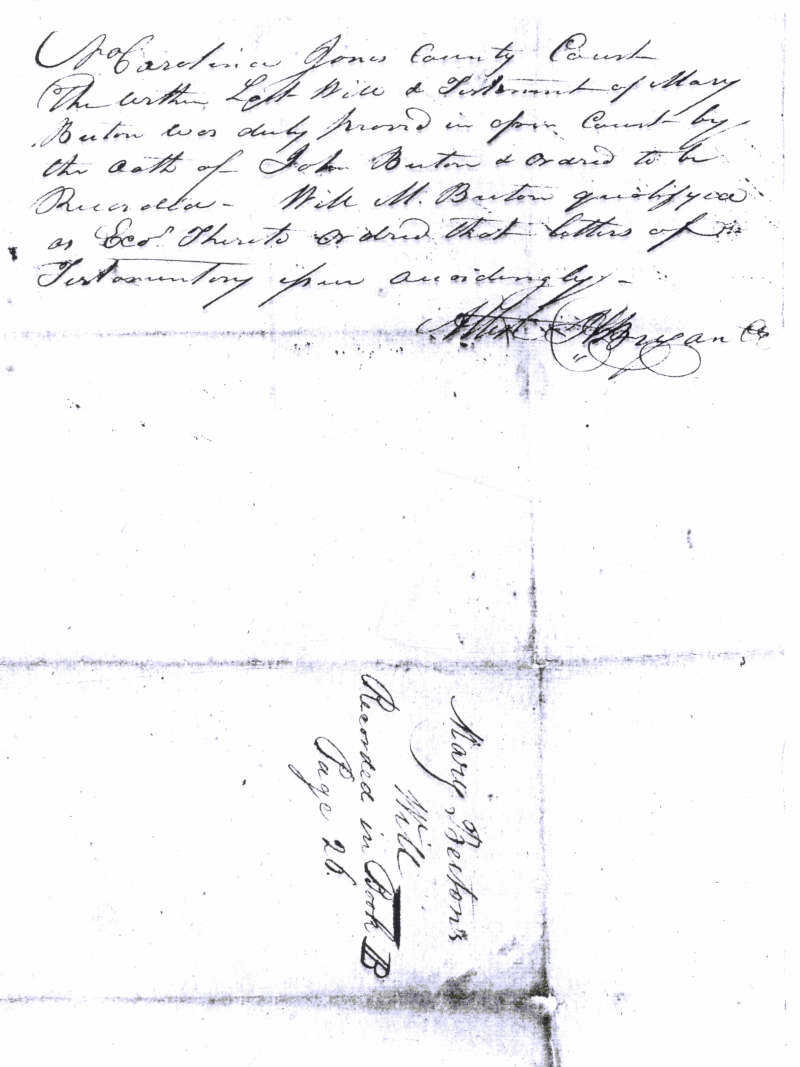 No Carolina Jones County Court
The within Last Will & Testament of Mary
Beeton was duly proved in open Court by
the oath of John Beeton & ordred to be
Recorded - Will M. Beeton qualifyed
as Eco.r Thereto ordred that letters of
Testamentory issue accordingly -
Attest
Mary Beeton's
Will
Recorded in Book B
Page 26.